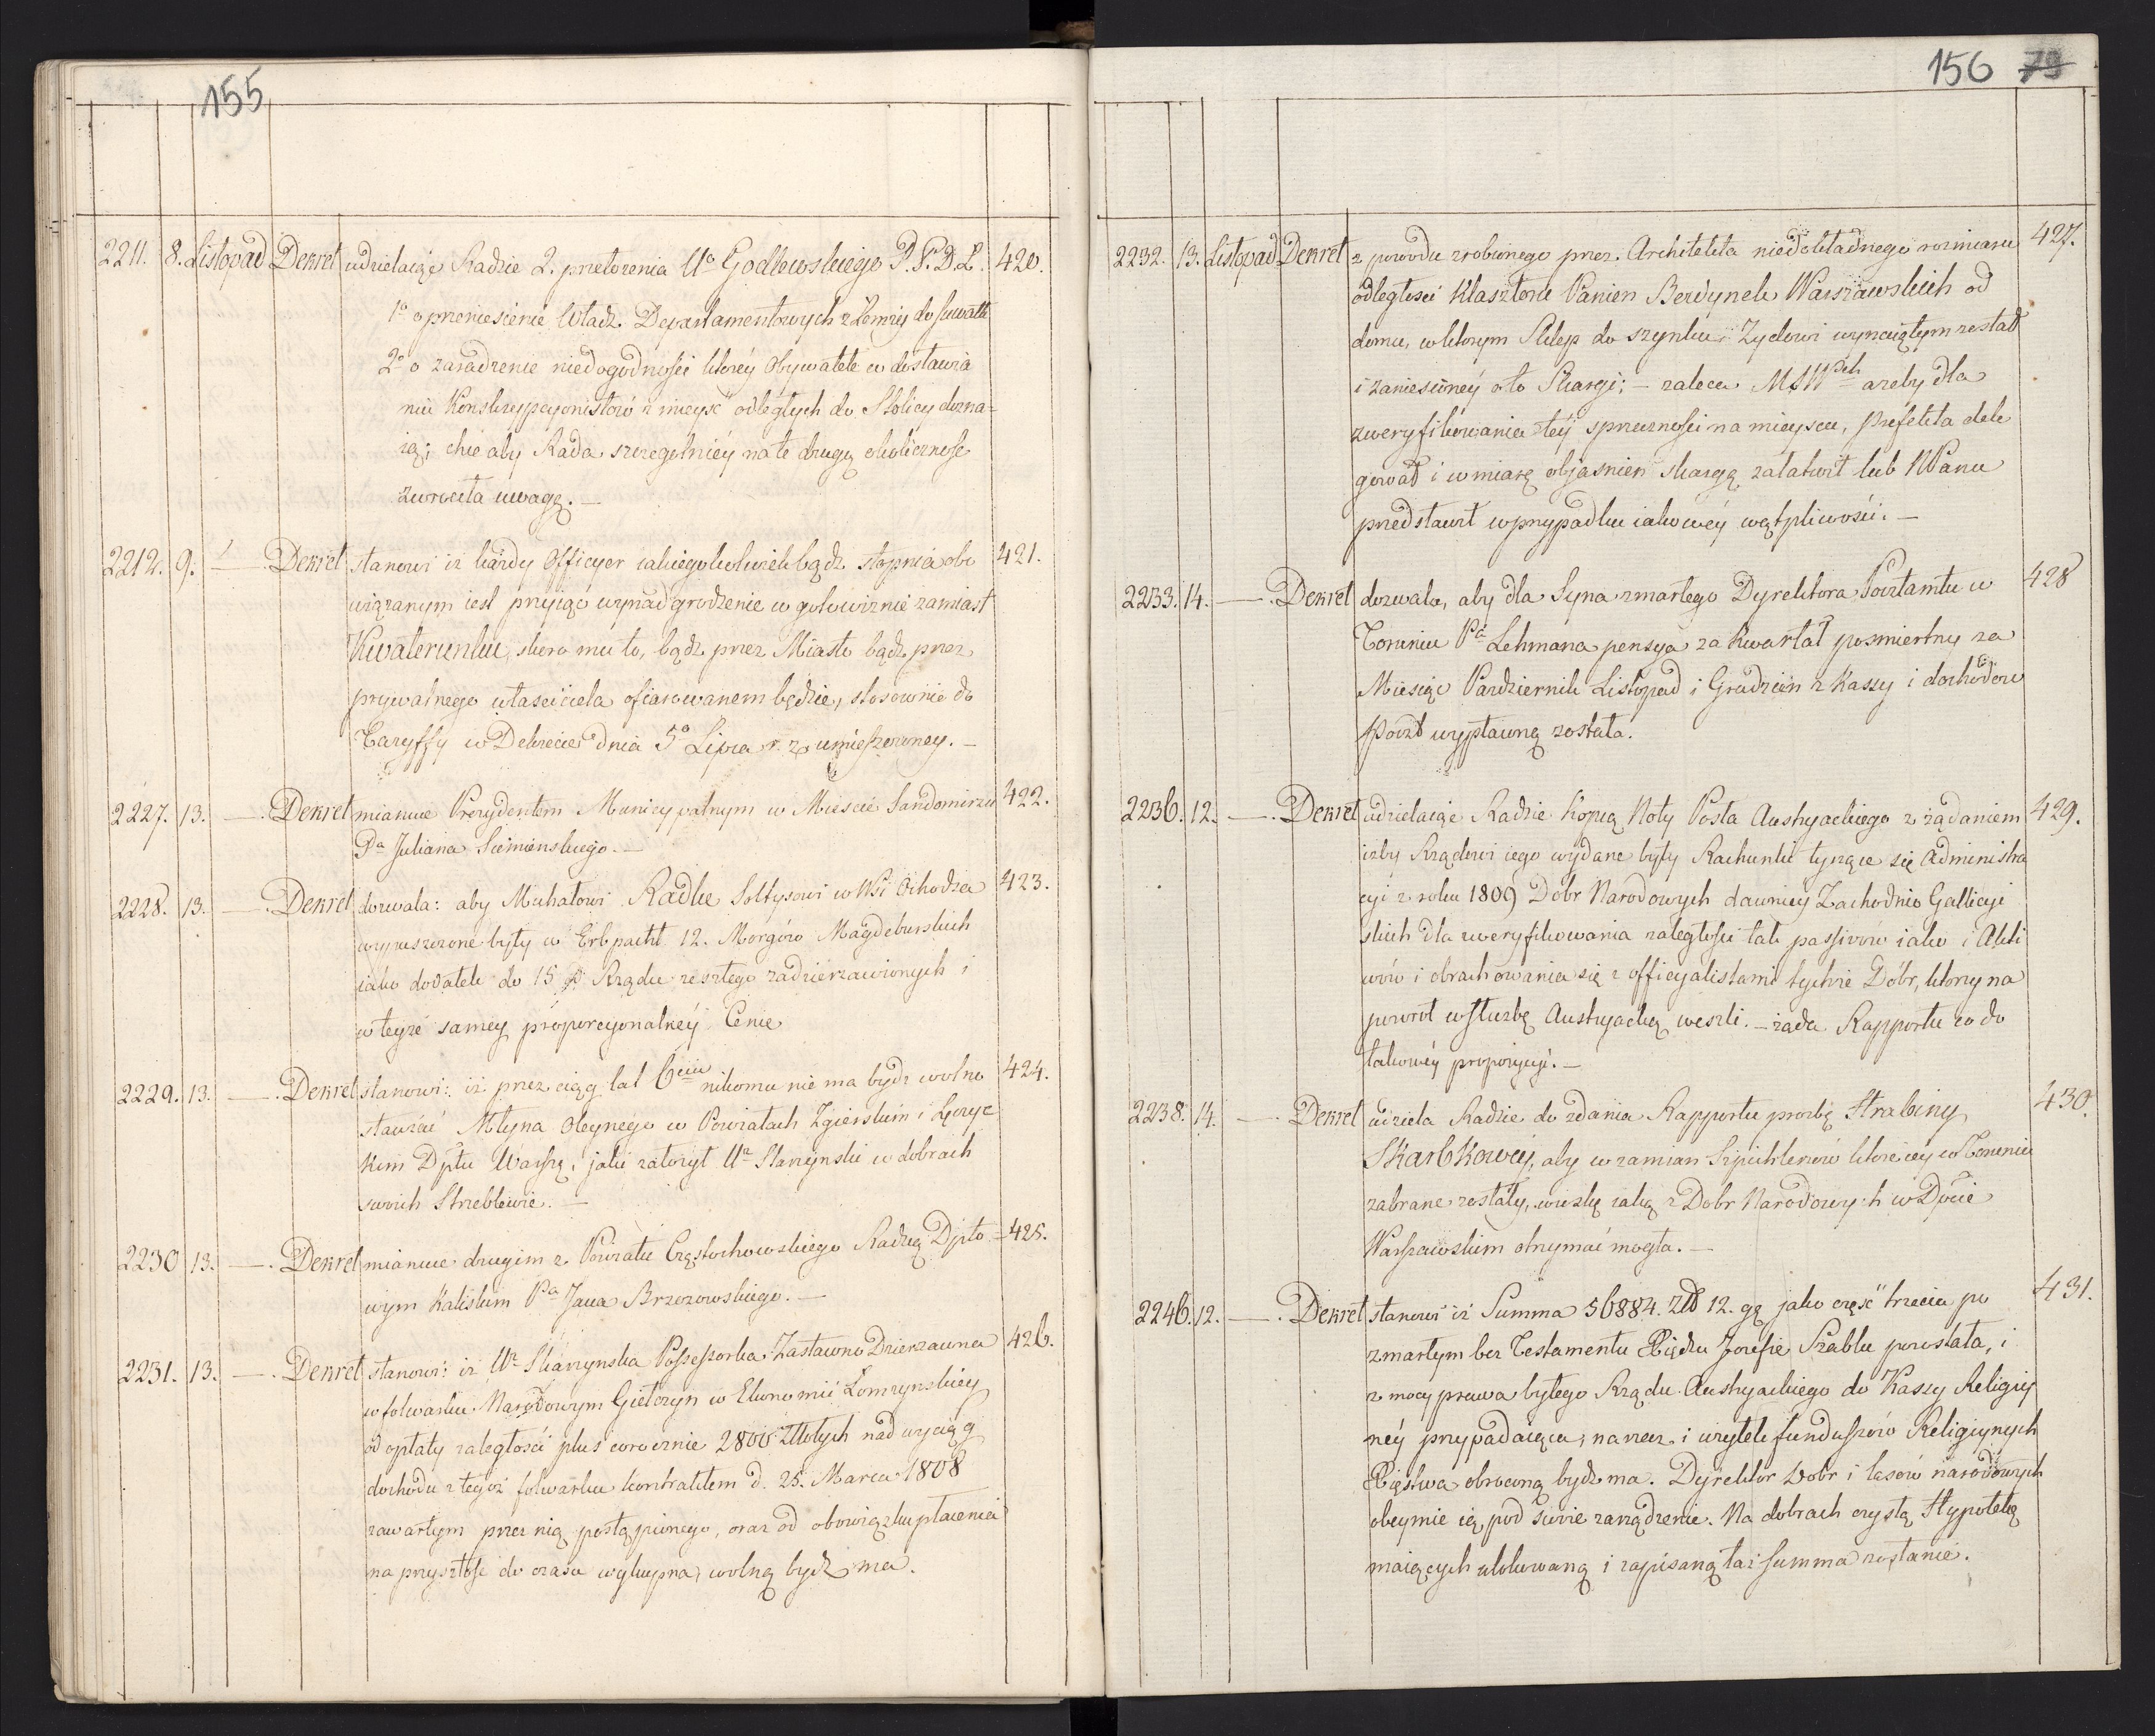 155
2211. 8. Listopad Dekret udzielaiąc Radzie 2. przełożenia Uo Godlewskiego P. P. D. Ł. 420.
1o o przeniesienie Władz Departamentowych z Łomży do Suwałk
2o o zaradzenie niedogodności którey Obywatele w dostawia
niu Konskrypcyonistów z mieysc odległych do Stolicy dozna=
ią; chce aby Rada szczegolniey na te drugą okoliczność
zwrociła uwagę. —
2212. 9. — Dekret stanowi iż każdy Officyer iakiegokolwiekbądz stopnia obo 421.
wiązanym iest przyiąć wynadgrodzenie w gotowiznie zamiast
Kwaterunku, skoro mu to, bądz przez Miasto bądz przez
prywatnego właściciela ofiarowanem będzie, stosownie do
Taryffy w Dekrecie dnia 5o Lipca r. z. umieszczoney. —
2227. 13. — Dekret mianuie Prezydentem Municypalnym w Mieście Sandomirzu 422.
Pa Juliana Siemienskiego. —
2228. 13. — Dekret dozwala: aby Michałowi Radke Sołtysowi w Wsi Ochodza 423.
wypuszczone były w Erbpacht 12. Morgów Magdeburskich
iako dodatek do 15 p. Rządu zeszłego zadzierzawionych i
w teyże samey proporcyonalney Cenie
2229. 13. — Dekret stanowi: iż przez ciąg lat 6ciu nikomu nie ma bydz wolno 424.
stawiać Młyna Oleynego w Powiatach Zgierskim i Łęczyc
kim Dptu Warszo, jaki założył Ur Starzynski w dobrach
swoich Strzeblewie. —
2230 13. — Dekret mianuie drugim z Powiatu Częstochowskiego Radzcą Dpto= 425.
wym Kaliskim Pa Jana Brzozowskiego. —
2231. 13. — Dekret stanowi: iż Wa Skarzynska Possessorka Zastawno Dzierzawna 426.
w folwarku Narodowym Giełczyn w Ekonomii Łomzynskiey
od opłaty zaległości plus corocznie 2800 Złłotych nad wyciąg
dochodu z tegoż folwarku kontraktem d. 25. Marca 1808
zawartym przez nią postąpionego, oraz od obowiązku płacenia
na przyszłość do czasu wykupna, wolną bydz ma.
156 79
2232. 13. Listopad Dekret z powodu zrobionego przez Architekta niedokładnego rozmiaru 427.
odległości Klasztoru Panien Berdynek Warszawskich od
domu, w ktorym Sklep do szynku Zydowi wynaiętym został
i zaniesioney o to Skargi; — zaleca MSWch azeby dla
zweryfikowania tey sprzeczności na mieyscu, Prefekta dele
gował i w miarę objasnień skargę załatwił lub NPanu
przedstawił w przypadku iakowey wątpliwości. —
2233. 14. — Dekret dozwala, aby dla Syna zmarłego Dyrektora Pocztamtu w 428
Toruniu Pa Lehmana pensya za Kwartał posmiertny za
Miesiąc Pazdziernik Listopad i Grudzien z Kassy i dochodow
Poczt wypłaconą została.
2236. 12. — Dekret udzielaiąc Radzie Kopią Noty Posła Austryackiego z żądaniem 429.
iżby Rządowi iego wydane były Rachunki tyczące się Administra
cyi z roku 1809 Dobr Narodowych dawniey Zachodnio Gallicyi
skich dla zweryfikowania zaległości tak passivów iako i Akti
wów i obrachowania się z officyalistami tychże Dóbr, ktorzy na
powrot w służbę Austryacką weszli. — żąda Rapportu co do
takowey propozycyi. —
2238. 14. — Dekret udziela Radzie do zdania Rapportu prozbę Hrabiny 430.
Skarbkowey, aby w zamian Szpichlerzów ktore iey w Toruniu
zabrane zostały, wioskę iaką z Dobr Narodowych w Dpcie
Warszawskim otrzymać mogła. —
2246. 12. — Dekret stanowi iż Summa 56884. Złł 12. gę jako część trzecia po 431.
zmarłym bez Testamentu Xiędzu Jozefie Szablu pozostała, i
z mocy prawa byłego Rządu Austryackiego do Kassy Religiy
ney przypadaiąca, na rzecz i użytek funduszów Religiynych
Xięstwa obroconą bydz ma. Dyrektor Dobr i lasów narodowych
obeymie ią pod swoie zarządzenie. Na dobrach czystą Hypotekę
maiących ulokowaną i zapisaną taż summa zostanie.